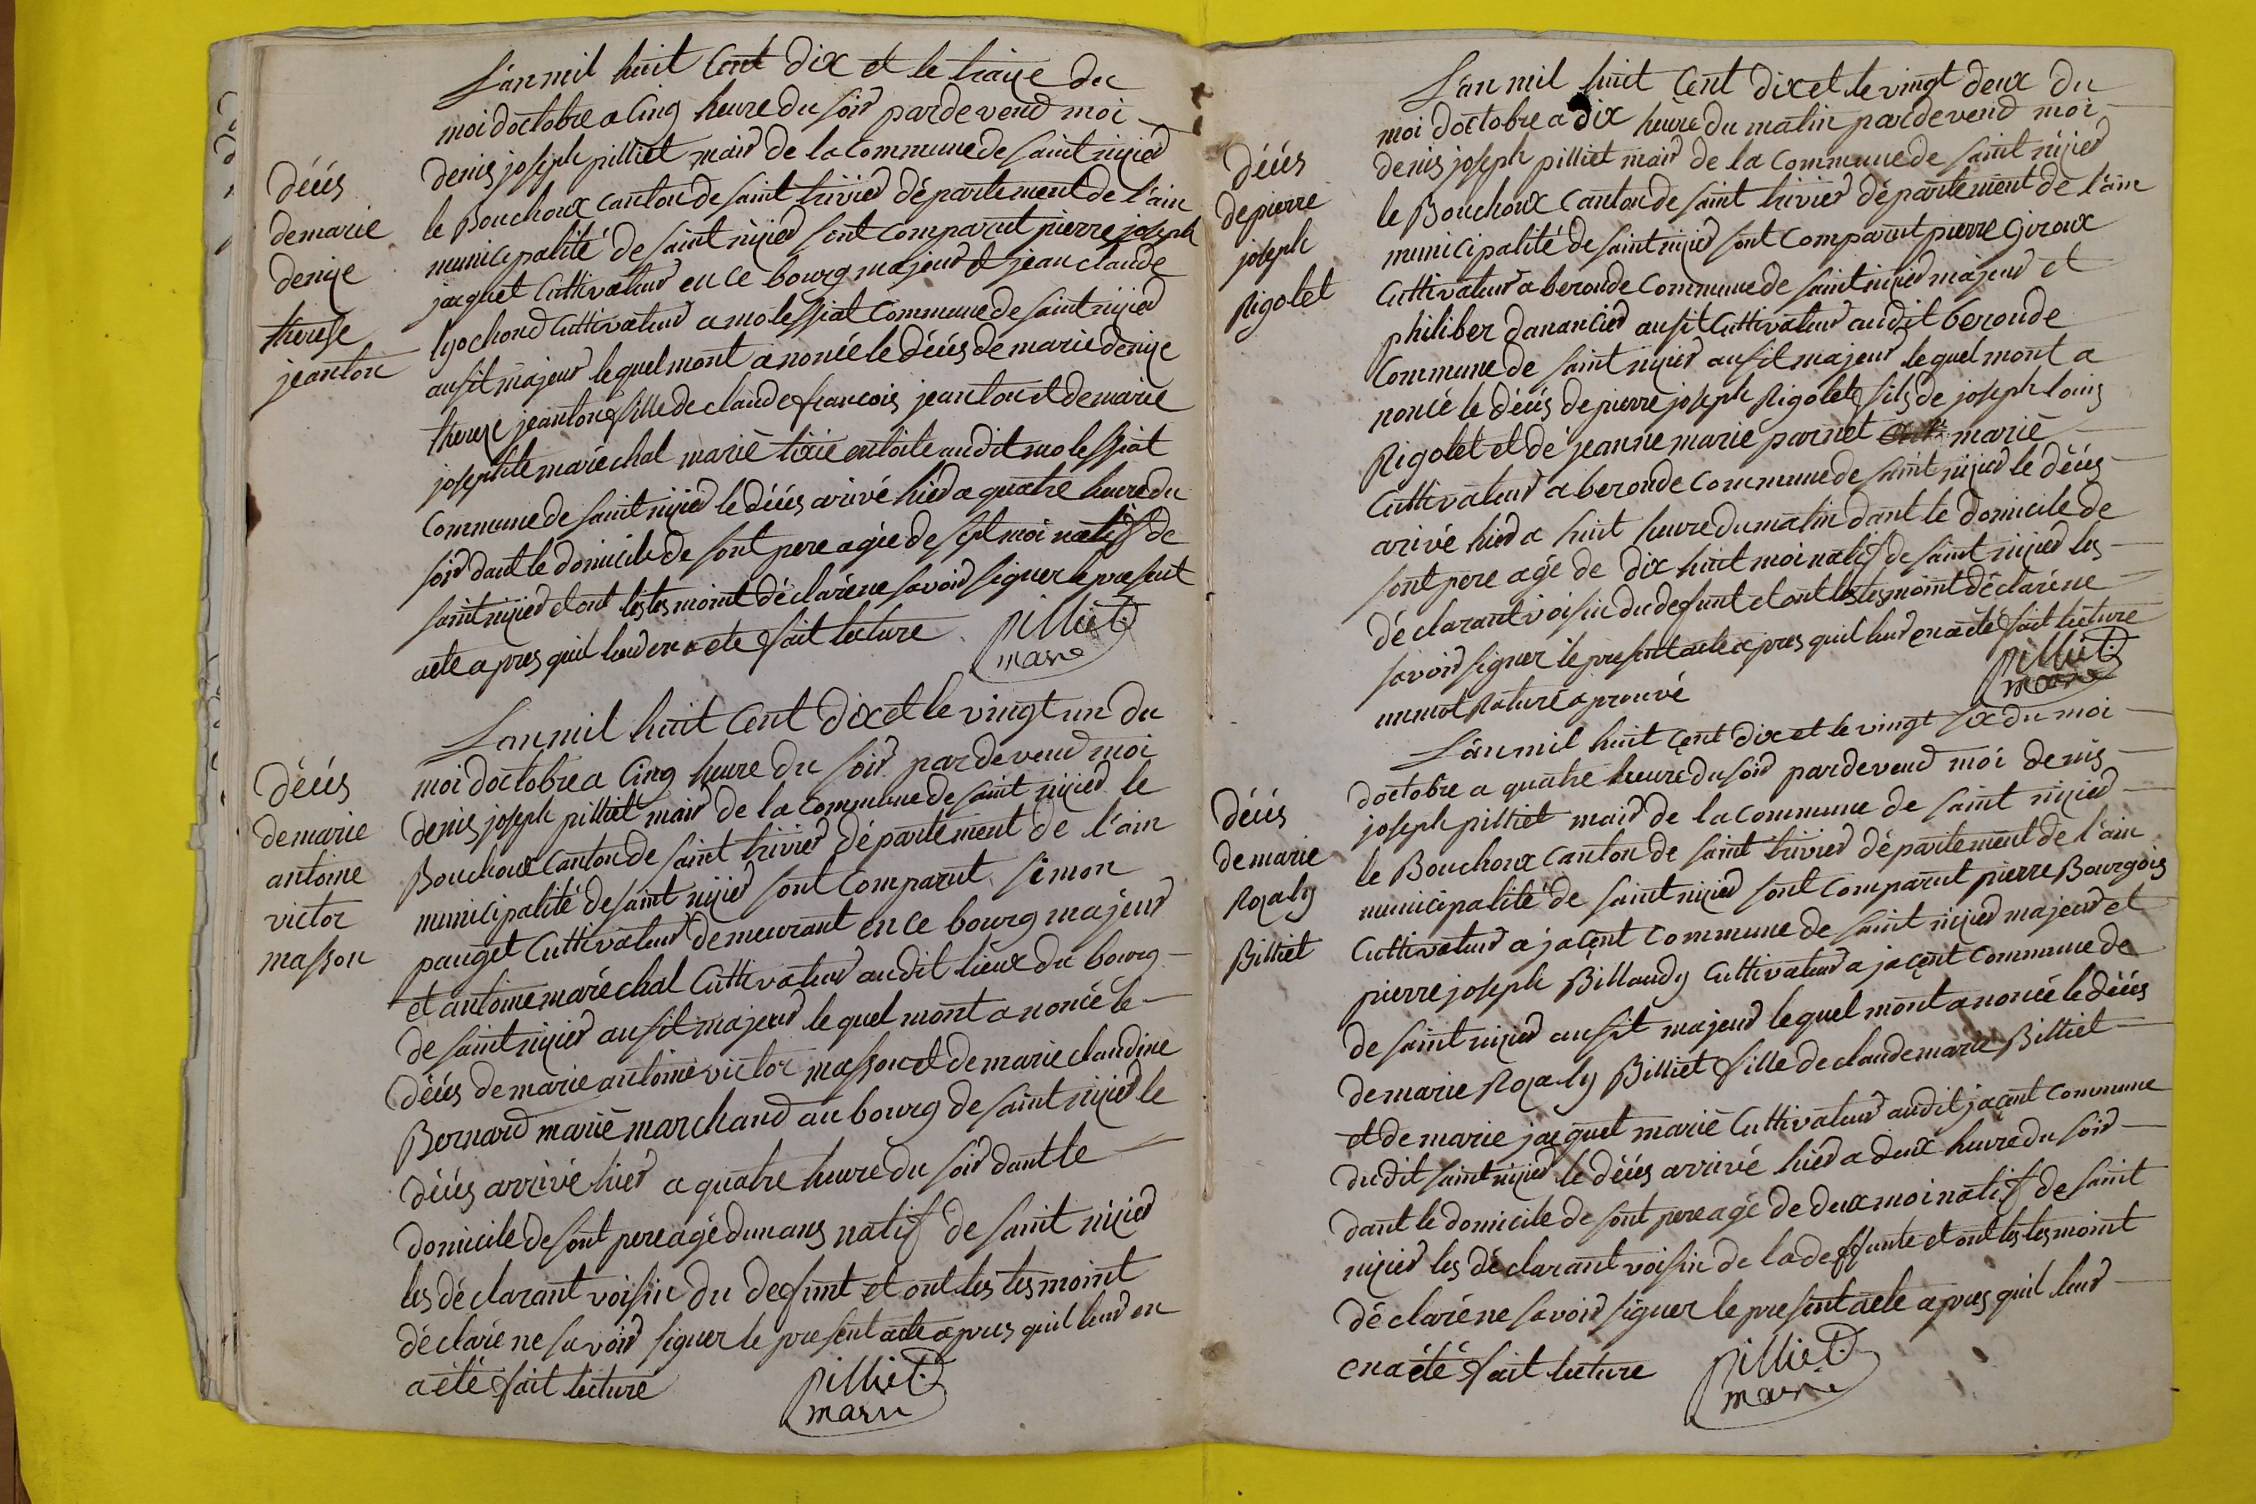 L'an mil huit Cent dix et le traize du
moi doctobre a Cinq heure du soir pardevend moi
denis joseph pilliet maird de la Commune de saint nizied
le Bouchoux Canton de saint trivied département de l'ain
municipalité de saint nizied sont Comparut pierre joseph
jacquet Cultivateur en ce bourg majeur et jean claude
Cultivateur a molessiat Commune de saint nizied
ausit majeur lequel mont anoncée le décés de marie denize
thereze jeanton fille de claude francois jeanton et de marie
josephte maréchal marié tixié en toile audit molessiat
Commune de saint nizied le décés arivé hied a quatre heure du
soir dant le domicile de sont pere agée de sept moi natif de
saint nizied et ont les tesmoint déclaré ne savoir signer le present
acte apres quil leud en a ete fait lecture
pilliet
maire
décés
de marie
denize
therese
jeanton
L'an mil huit Cent dix et le vingt un du
moi doctobre a Cinq heure du soir pardevend moi
denis joseph pilliet maird de la Commune de saint nizied le
Bouchoux Canton de saint trivied département de l'ain
municipalité de saint nizied sont Comparut simon
pauget Cultivateur demeurant en ce bourg majeur
et antoine maréchal Cultivateur audit lieux du bourg
de saint nizied ausit majeur lequel mont anoncée le
décés de marie antoine victor masson et de marie claudine
Bernard marié marchand au bourg de saint nizied le
décés arrivé hied a quatre heure du soir dant le
domicile de sont pere agé dun ans natif de saint nizied
les déclarant voisin du defunt et ont les tesmoint
déclaré ne savoir signer le present acte apres quil leud en
a été fait lecture
pilliet
maire
décés
de marie
antoine
victor
masson
L'an mil huit Cent dix et le vingt deux du
moi doctobre a dix heure du matin pardevend moi
denis joseph pilliet maird de la Commune de saint nizied
le Bouchoux Canton de saint trivied département de l'ain
municipalité de saint nizied sont Comparut pierre Giroux
Cultivateur a beronde Commune de saint nizied majeur et
philiber danancied ausit Cultivateur audit beronde
Commune de saint nizied ausit majeur lequel mont a
noncé le décés de pierre joseph Rigolet fils de joseph louis
Rigolet et de jeanne marie parnet marié
Cultivateur a beronde Commune de saint nizied le décés
arivé hied a huit heure du matin dant le domicile de
sont pere agé de dix huit moi natif de saint nizied les
déclarant voisin du defunt et ont les tesmoint déclaré ne
savoir signer le present acte apres quil leud en a été fait lecture
un mot raturé aprouvé
pilliet
maire
décés
de pierre
joseph
Rigolet
L'an mil huit Cent dix et le vingt six du moi
doctobre a quatre heure du soir pardevend moi denis
joseph pilliet maird de la Commune de saint nizied
le Bouchoux Canton de saint trivied département de l'ain
municipalité de saint nizied sont Comparut pierre Bourgois
Cultivateur a jacent Commune de saint nizied majeur et
pierre joseph Billaudy Cultivateur a jacent Commune de
de saint nizied ausit majeur lequel mont anoncée le décés
de marie Rozaly Billiet fille de claude marie Billiet
et de marie jacquet marié Cultivateur audit jacent Commune
dudit saint nizied le décés arrivé hied a deux heure du soir
dant le domicile de sont pere agé de deux moi natif de saint
nizied les déclarant voisin de la deffunte et ont les tesmoint
déclaré ne savoir signer le present acte apres quil leud
en a été fait lecture
pilliet
maire
décés
de marie
Rozaly
Billiet